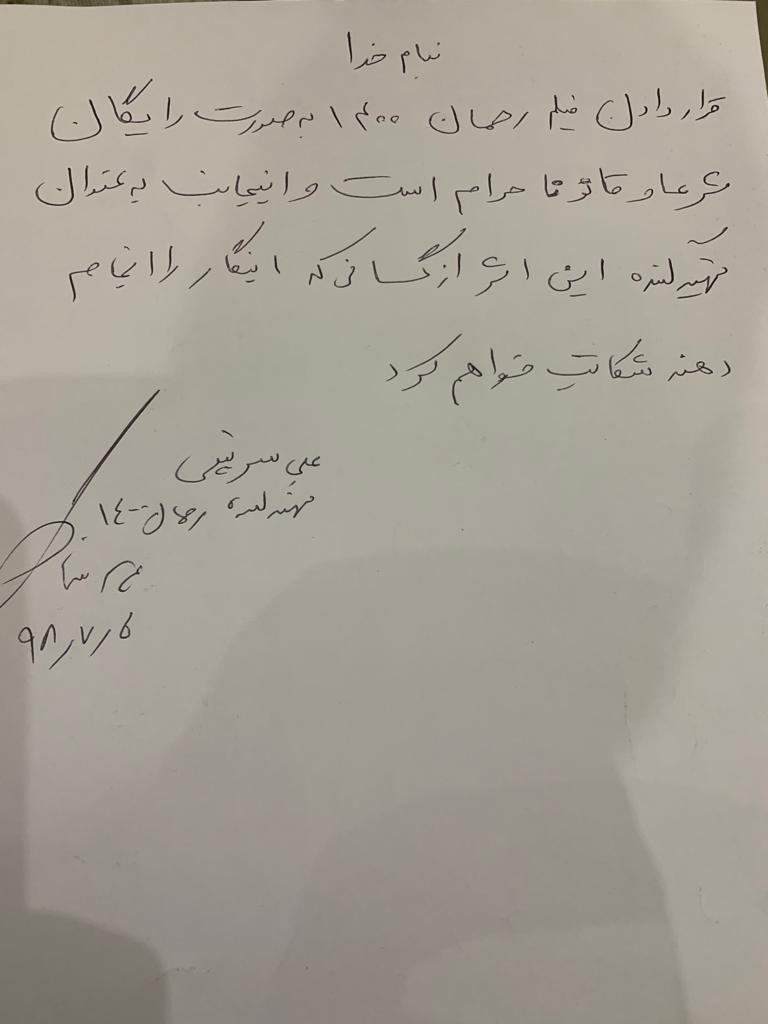 بنام خدا
قرار دادن فیلم رحمان ۱۴۰۰ به صورت رایگان
شرعا و قانونا حرام است و اینجانب به عنوان
تهیه کننده این اثر از کسانی که اینکار را انجام
دهند شکایت خواهم کرد
علی سرتیپی
تهیه کننده رحمان ۱۴۰۰
۹۸٫۷٫۵